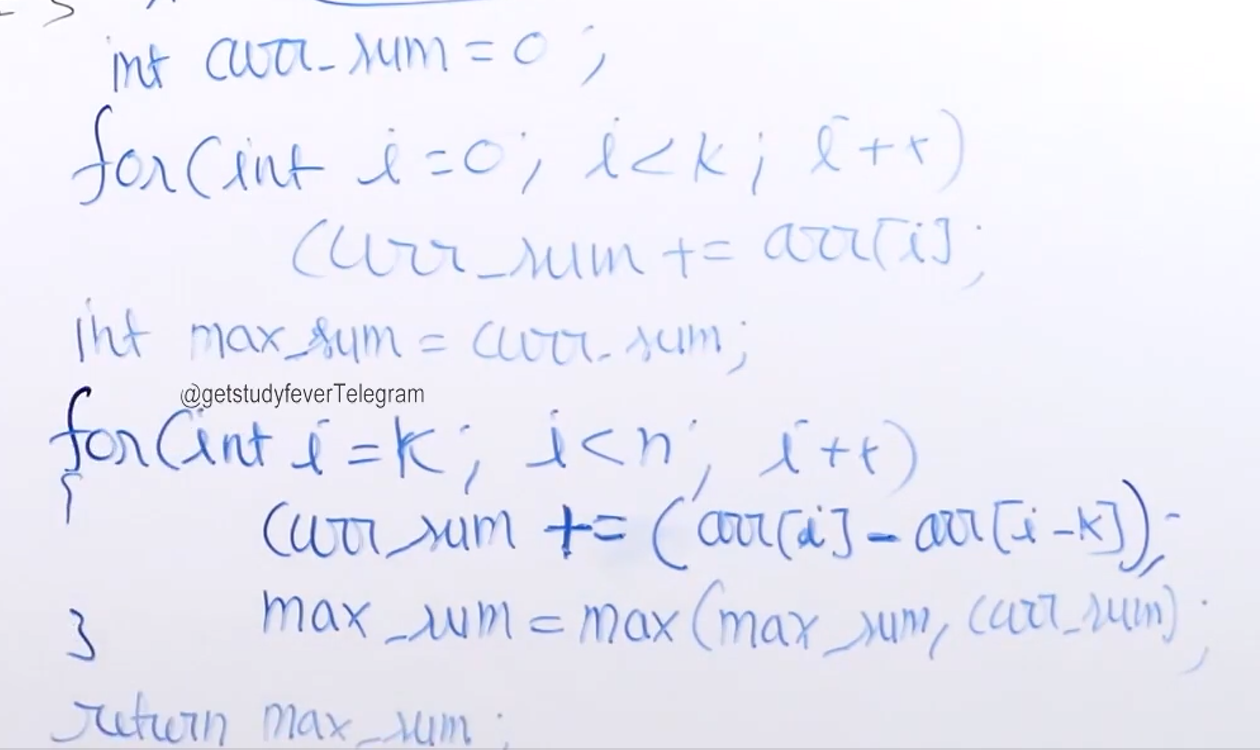 int curr_sum = 0 ;
for(int i=0; i<k; i++)
curr_sum += arr[i];
int max_sum = curr_sum;
@getstudyfeverTelegram
for(int i=k; i<n; i++)
{
curr_sum += (arr[i] - arr[i-k]);
max_sum = max(max_sum, curr_sum);
}
return max_sum;